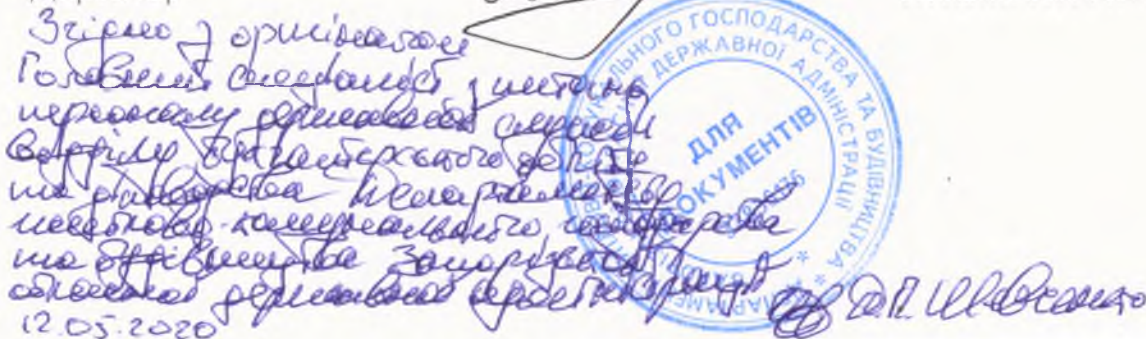 Згідно з оригіналом
Головний спеціаліст з питань
персоналу державної служби
відділу бухгалтерського обліку
та діловодства Департаменту
житлово-комунального господарства
та будівництва Запорізької
обласної державної адміністрації
Д.П. Шевченко
12.05.2020
ГОСПОДАРСТВА ТА БУДІВНИЦТВА
ДЕРЖАВНОЇ АДМІНІСТРАЦІЇ
ДЛЯ
ДОКУМЕНТІВ